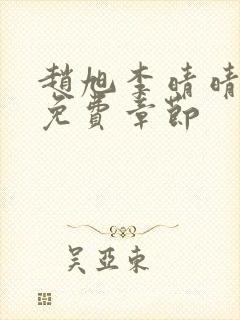 趙旭李晴晴
免費章節
吴亞東